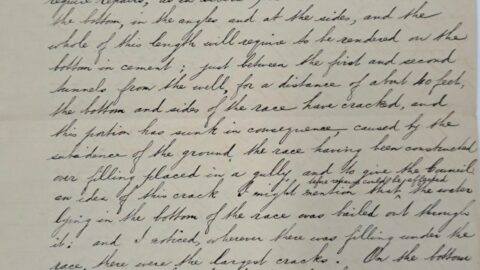 require repairs, as in
the bottom, in the angles and at the sides, and the
whole of this length will require to be rendered on the
bottom in cement: just between the first and second
tunnels from the well, for a distance of about 40 feet,
the bottom and sides of the race have cracked, and
this portion has sunk in consequence caused by the
subsidence of the ground, the race having been constructed
over filling placed in a gully, and to give the Council
an idea of this crack I might mention that the water
lying in the bottom of the race was bailed out through
it: and I noticed, wherever there was filling under the
race, there were the largest cracks. On the bottom